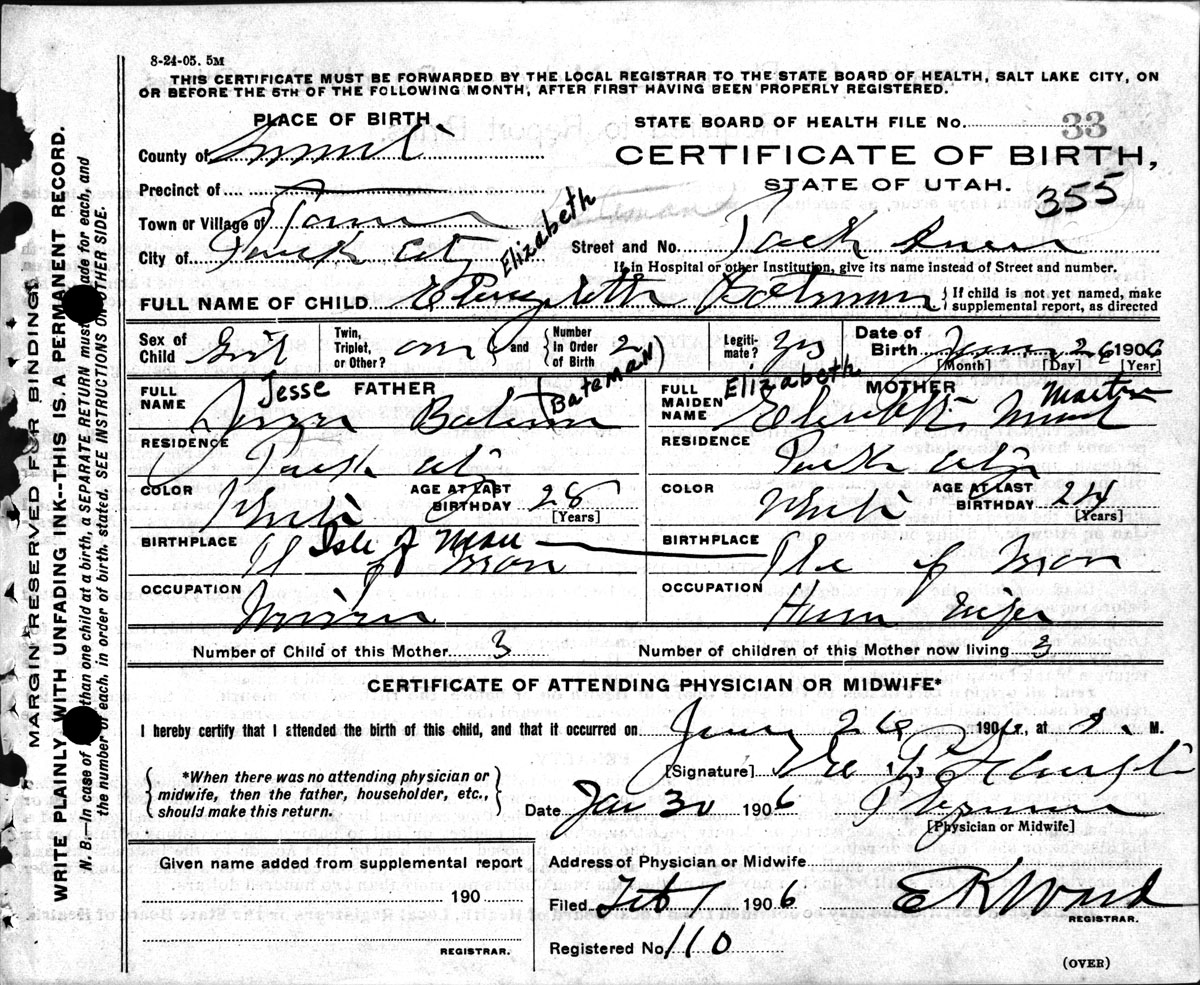 8-24-05. 5M
THIS CERTIFICATE MUST BE FORWARDED BY THE LOCAL REGISTRAR TO THE STATE BOARD OF HEALTH, SALT LAKE CITY, ON
OR BEFORE THE 5TH OF THE FOLLOWING MONTH, AFTER FIRST HAVING BEEN PROPERLY REGISTERED.
PLACE OF BIRTH
STATE BOARD OF HEALTH FILE No. 33
County of Summit
CERTIFICATE OF BIRTH,
STATE OF UTAH.
355
Precinct of
Town or Village of
City of Park City
Street and No. Park
If in Hospital or other Institution, give its name instead of Street and number.
Elizabeth
FULL NAME OF CHILD Elizabeth Bateman
If child is not yet named, make
supplemental report, as directed
Sex of Child Girl
Twin, Triplet, or Other? one and Number In Order of Birth 2
Legiti-mate? yes
Date of Birth 26 1906
[Month] [Day] [Year]
FULL NAME Jesse FATHER Bateman
FULL MAIDEN NAME Elizabeth MOTHER
RESIDENCE Park City
RESIDENCE Park City
COLOR White AGE AT LAST BIRTHDAY 28 [Years]
COLOR White AGE AT LAST BIRTHDAY 24 [Years]
BIRTHPLACE Isle of Man
BIRTHPLACE Isle of Man
OCCUPATION Miner
OCCUPATION House Wife
Number of Child of this Mother 3
Number of children of this Mother now living 3
CERTIFICATE OF ATTENDING PHYSICIAN OR MIDWIFE*
I hereby certify that I attended the birth of this child, and that it occurred on 26 1906, at M.
*When there was no attending physician or
midwife, then the father, householder, etc.,
should make this return.
[Signature]
Date Jan 30 1906
[Physician or Midwife]
Given name added from supplemental report
190
REGISTRAR.
Address of Physician or Midwife
Filed Feb 1 1906 E K Ward
REGISTRAR.
Registered No. 110
(OVER)
MARGIN RESERVED FOR BINDING.
WRITE PLAINLY WITH UNFADING INK--THIS IS A PERMANENT RECORD.
N. B.—In case of than one child at a birth, a SEPARATE RETURN must made for each, and
the number of each, in order of birth, stated. SEE INSTRUCTIONS ON OTHER SIDE.